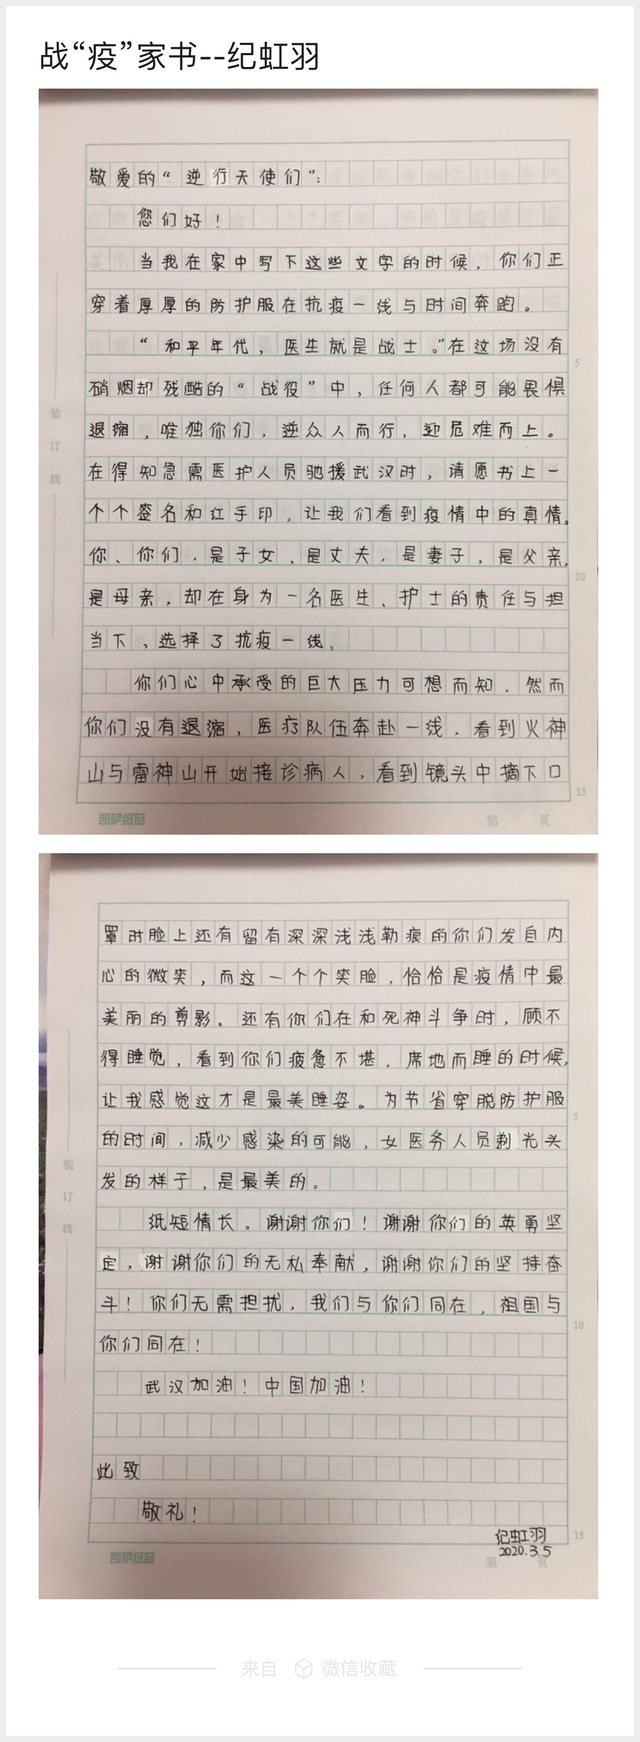 战“疫”家书--纪虹羽
敬爱的“逆行天使们”：
您们好！
当我在家中写下这些文字的时候，你们正
穿着厚厚的防护服在抗疫一线与时间奔跑。
“和平年代，医生就是战士。”在这场没有
硝烟却残酷的“战役”中，任何人都可能畏惧
退缩，唯独你们，逆众人而行，迎危难而上。
在得知急需医护人员驰援武汉时，请愿书上一
个个签名和红手印，让我们看到疫情中的真情。
你、你们，是子女、是丈夫，是妻子，是父亲，
是母亲，却在身为一名医生、护士的责任与担
当下，选择了抗疫一线。
你们心中承受的巨大压力可想而知，然而
你们没有退缩，医疗队伍奔赴一线，看到火神
山与雷神山开始接诊病人，看到镜头中摘下口
装
订
线
5
10
15
凯萨纸品
第 页
罩时脸上还有留有深深浅浅勒痕的你们发自内
心的微笑，而这一个个笑脸，恰恰是疫情中最
美丽的剪影。还有你们在和死神斗争时，顾不
得睡觉，看到你们疲惫不堪，席地而睡的时候，
让我感觉这才是最美睡姿。为节省穿脱防护服
的时间，减少感染的可能，女医务人员剃光头
发的样子，是最美的。
纸短情长。谢谢你们！谢谢你们的英勇坚
定，谢谢你们的无私奉献，谢谢你们的坚持奋
斗！你们无需担扰，我们与你们同在，祖国与
你们同在！
武汉加油！中国加油！
此致
敬礼！
纪虹羽
2020.3.5
装
订
线
5
10
15
凯萨纸品
第 页
来自 微信收藏